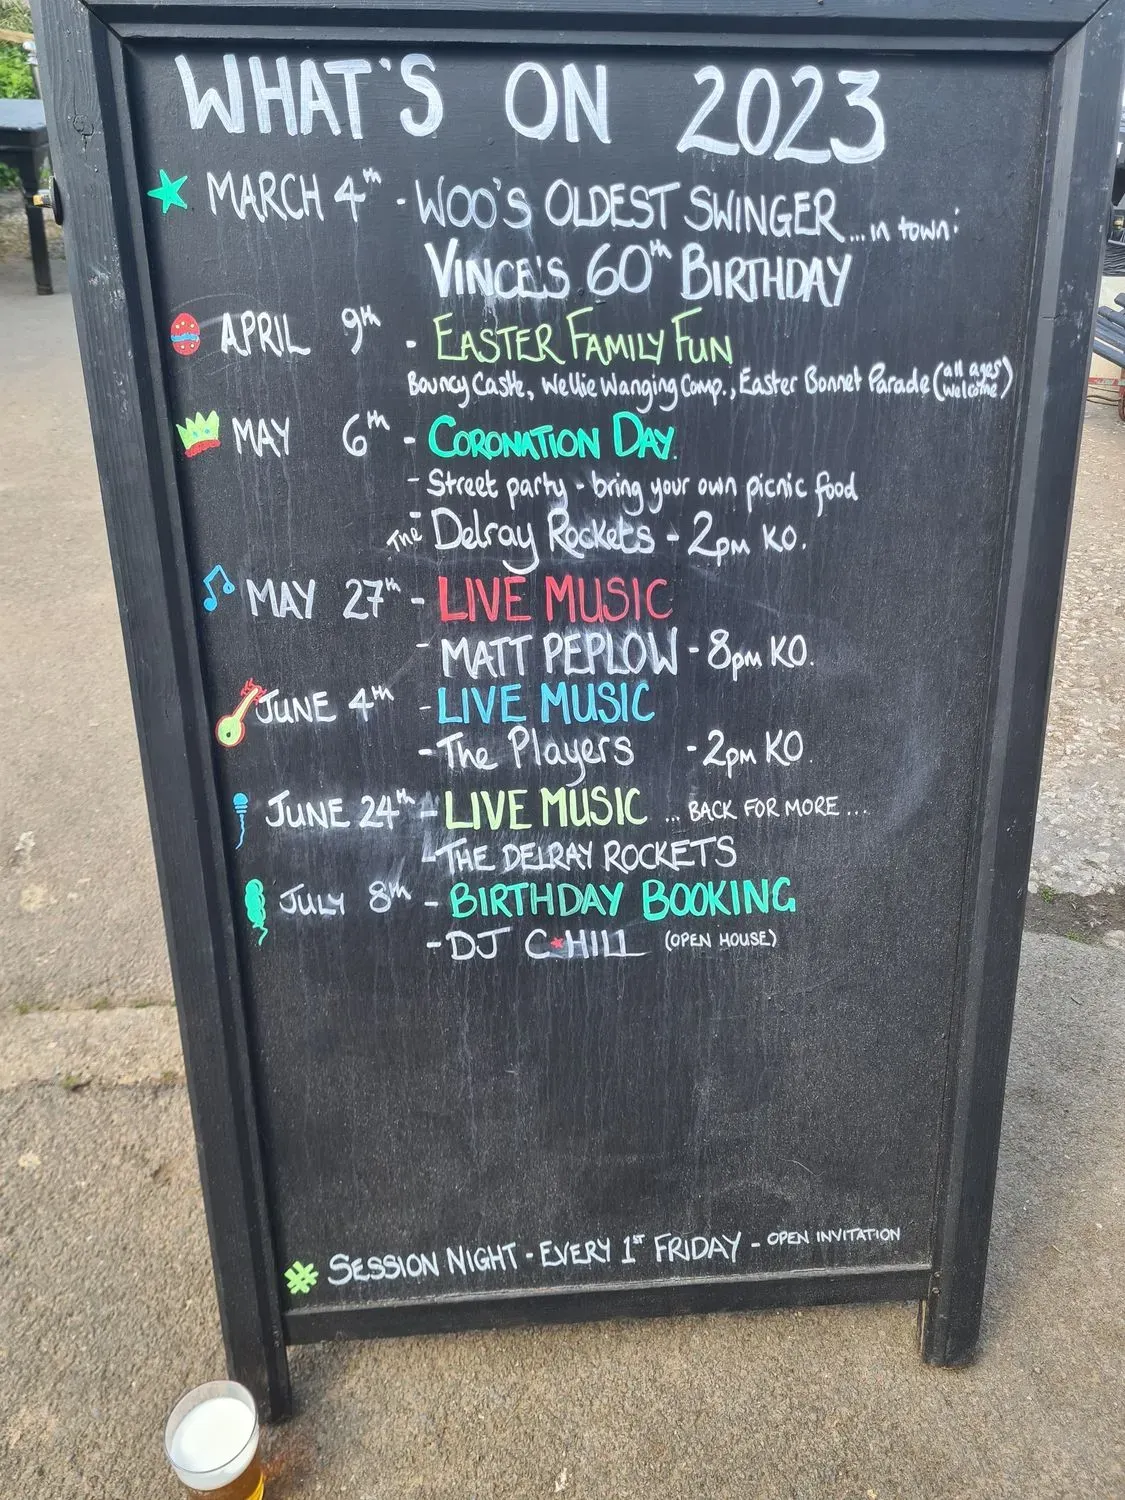 WHAT'S ON 2023
MARCH 4th - WOO'S OLDEST SWINGER ... in town:
VINCE'S 60th BIRTHDAY
APRIL 9th - EASTER FAMILY FUN
Bouncy Castle, Wellie Wanging Comp., Easter Bonnet Parade (all ages welcome)
MAY 6th - CORONATION DAY.
- Street party - bring your own picnic food
- The Delray Rockets - 2pm KO.
MAY 27th - LIVE MUSIC
- MATT PEPLOW - 8pm KO.
JUNE 4th - LIVE MUSIC
- The Players - 2pm KO.
JUNE 24th - LIVE MUSIC ... BACK FOR MORE ...
- THE DELRAY ROCKETS
JULY 8th - BIRTHDAY BOOKING
- DJ C*HILL (OPEN HOUSE)
SESSION NIGHT - EVERY 1ST FRIDAY - OPEN INVITATION